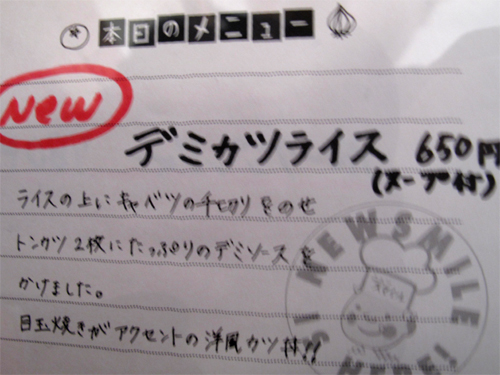 本日のメニュー
NEW
デミカツライス 650円
(スープ付)
ライスの上にキャベツの千切りをのせ
トンカツ2枚にたっぷりのデミソースを
かけました。
目玉焼きがアクセントの洋風カツ丼!!
NEWSMILE